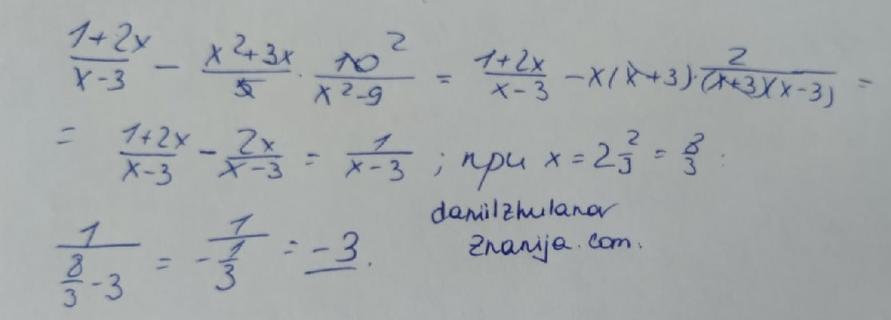 (1+2x)/(x-3) - (x²+3x)/5 · 10²/(x²-9) = (1+2x)/(x-3) - x(x+3)·2/((x+3)(x-3)) =
= (1+2x)/(x-3) - 2x/(x-3) = 1/(x-3) ; при x = 2 2/3 = 8/3 :
danilzhulanov
znanija.com.
1/(8/3-3) = -1/(1/3) = -3.